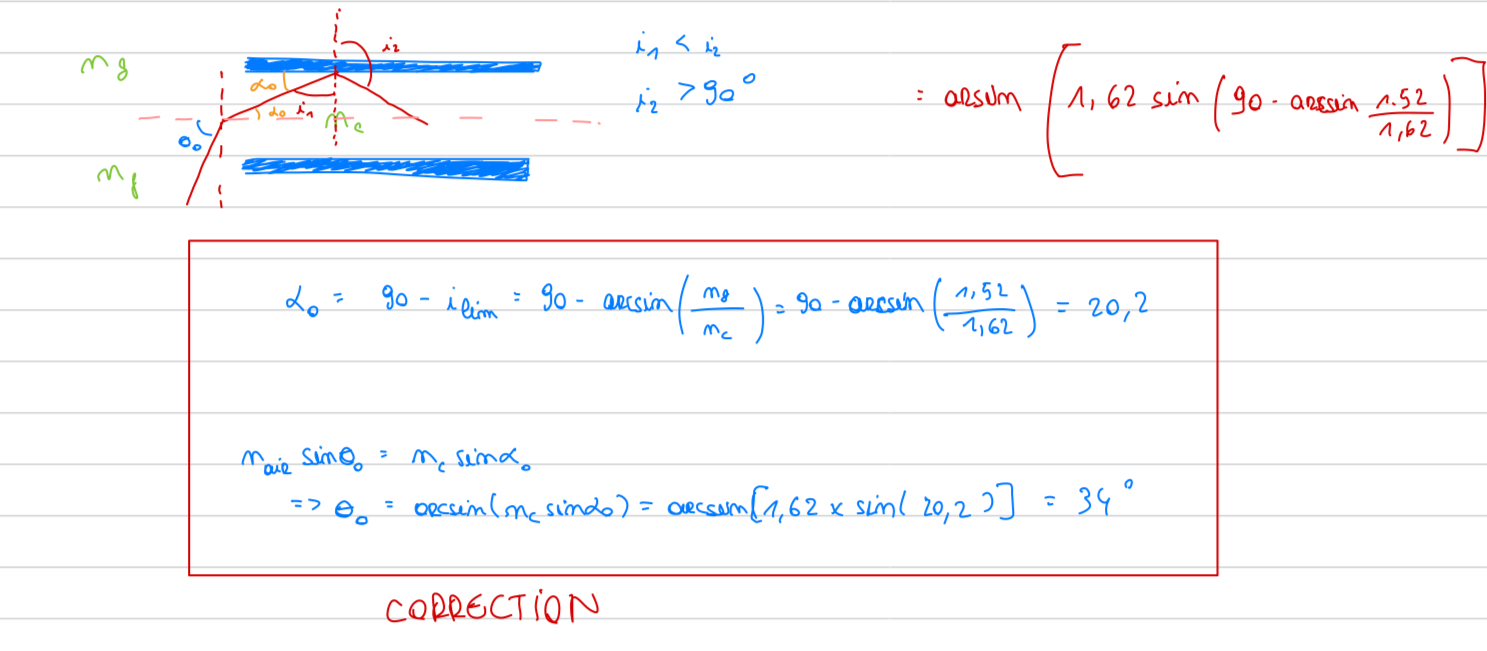 i₂
n_g
α₀
α₀ i₁
n_c
θ₀
n_g
i₁ < i₂
i₂ > 90°
= arsum [1,62 sin (90 - arcsin 1.52/1,62)]
α₀ = 90 - i_lim = 90 - arcsin(n_g/n_c) = 90 - arcsin(1,52/1,62) = 20,2
n_air sinθ₀ = n_c sinα₀
=> θ₀ = arcsin(n_c sinα₀) = arcsin[1,62 x sin( 20,2 )] = 34°
CORRECTION